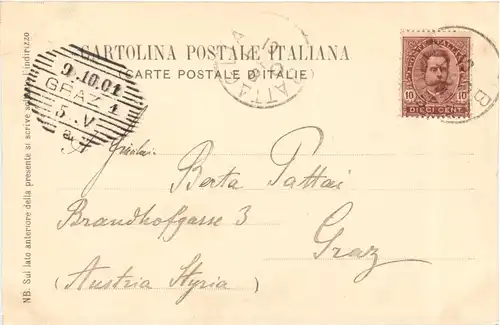 CARTOLINA POSTALE ITALIANA
(CARTE POSTALE D'ITALIE)
POSTE ITALIANE
10 10
DIECI CENT.
9.10.01
GRAZ 1
5.V
Berta Pattai
Brandhofgasse 3
Graz
(Austria Styria)
NB. Sul lato anteriore della presente si scrive l'indirizzo